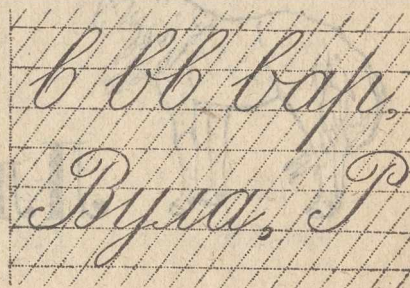 в вв вар,
Вула, Р